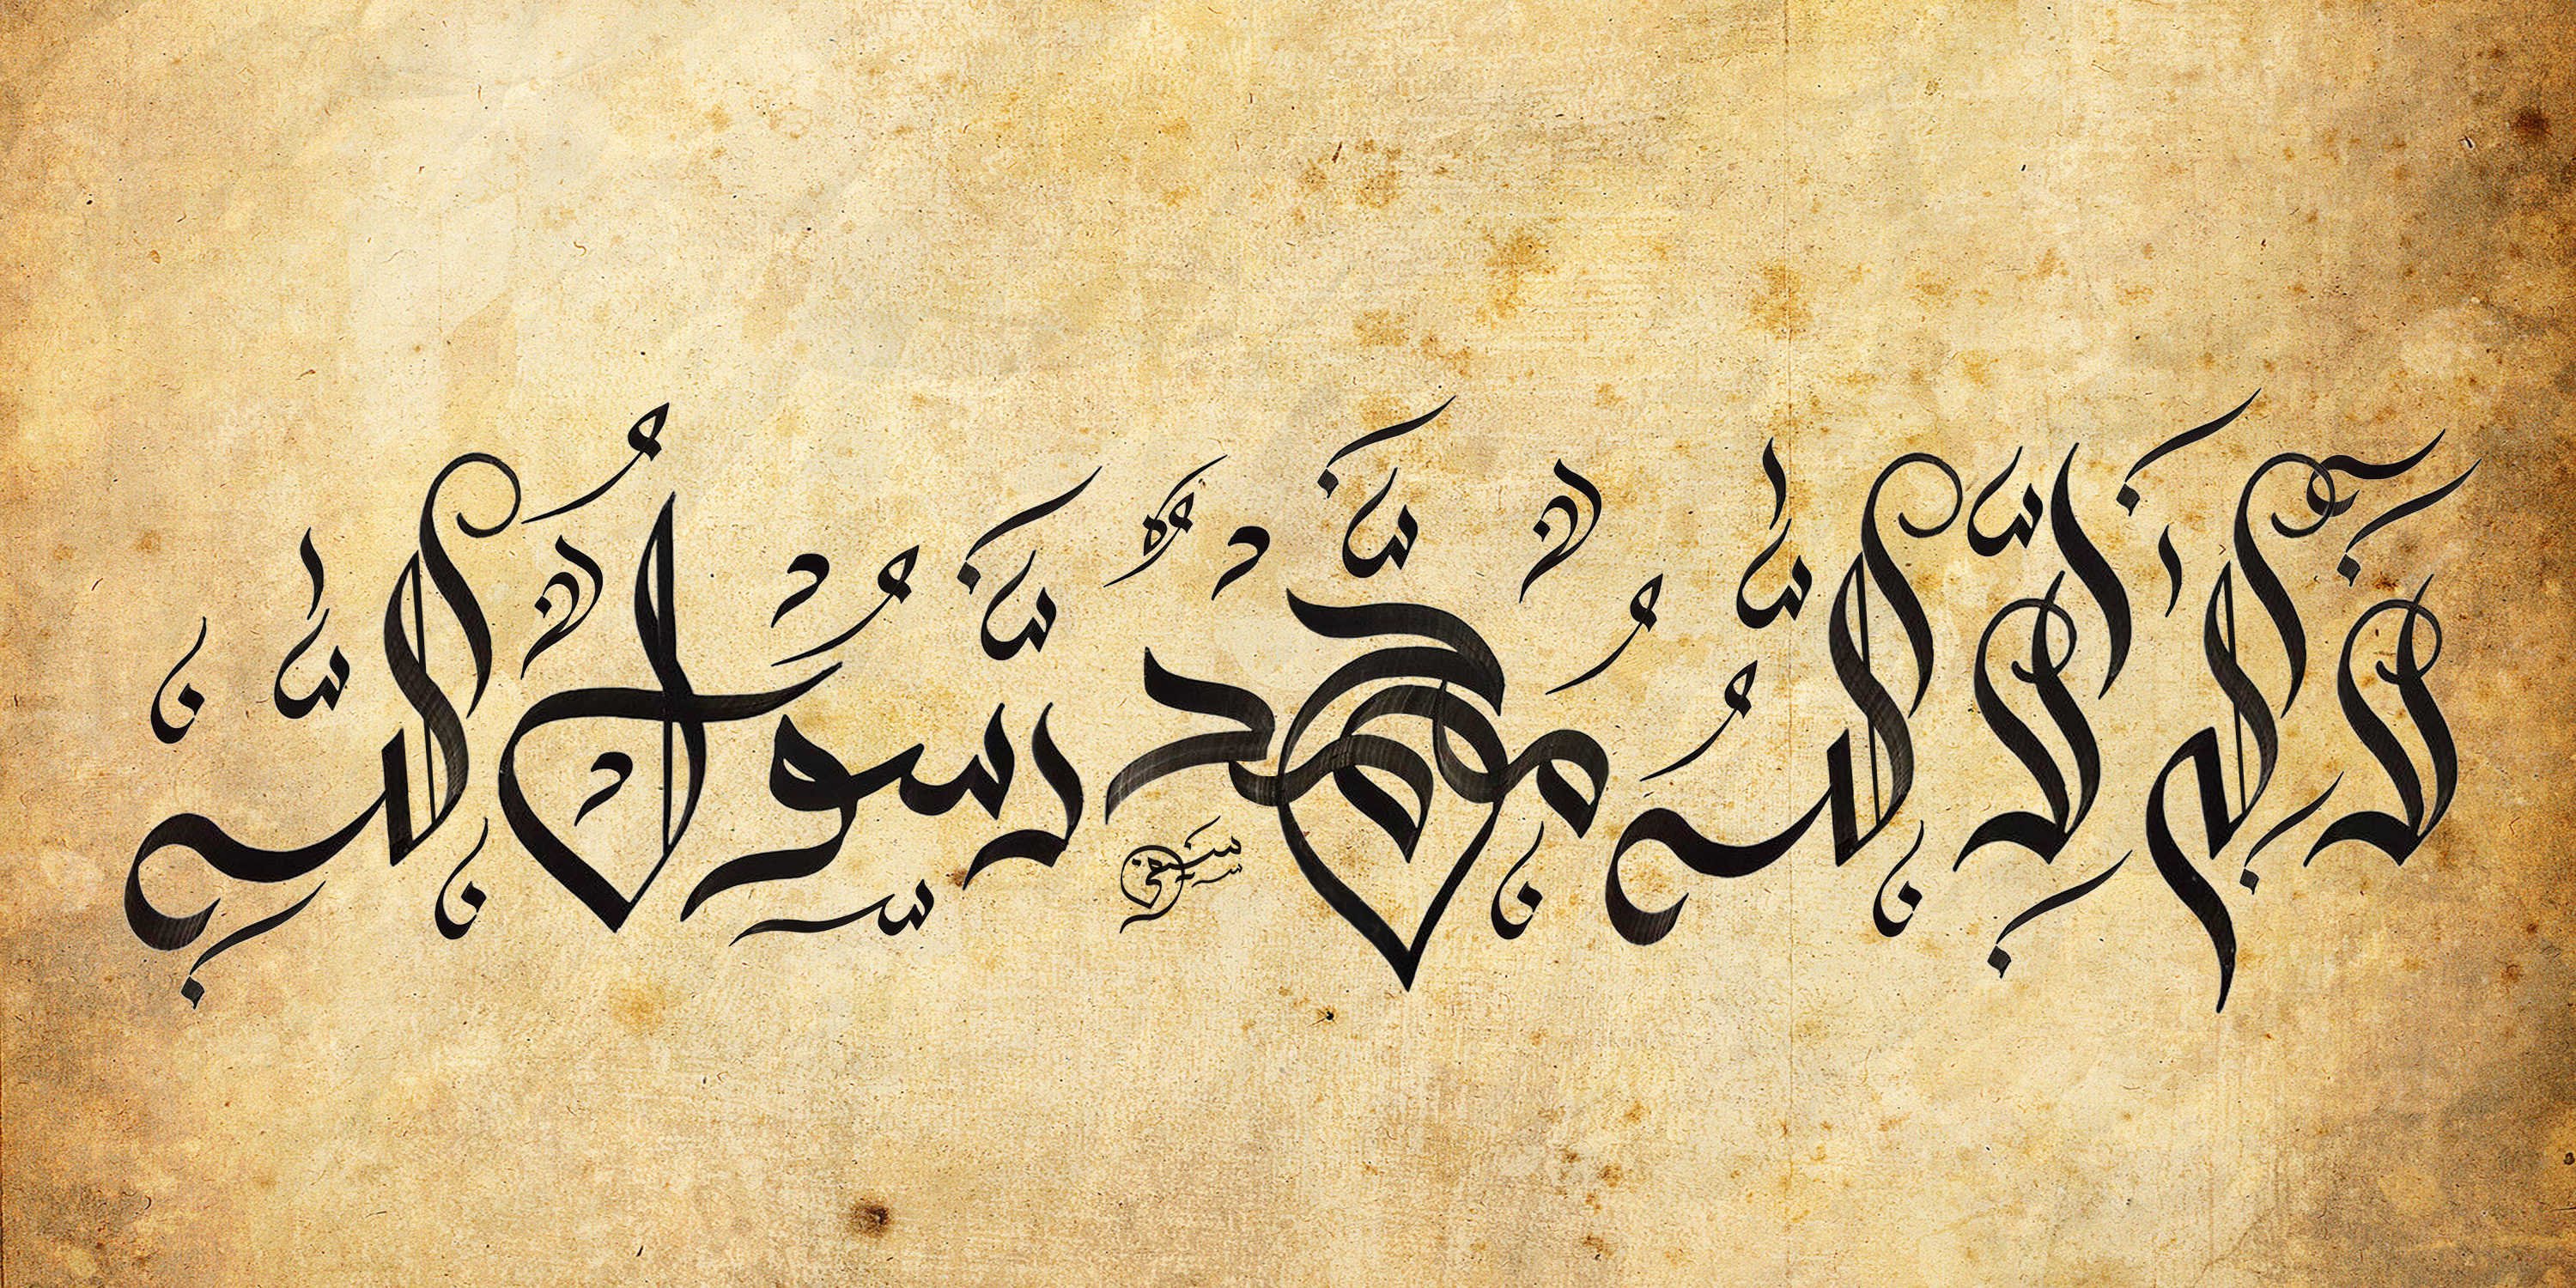 لَآ إِلٰهَ إِلَّا اللّٰهُ مُحَمَّدٌ رَّسُوْلُ اللّٰهِ